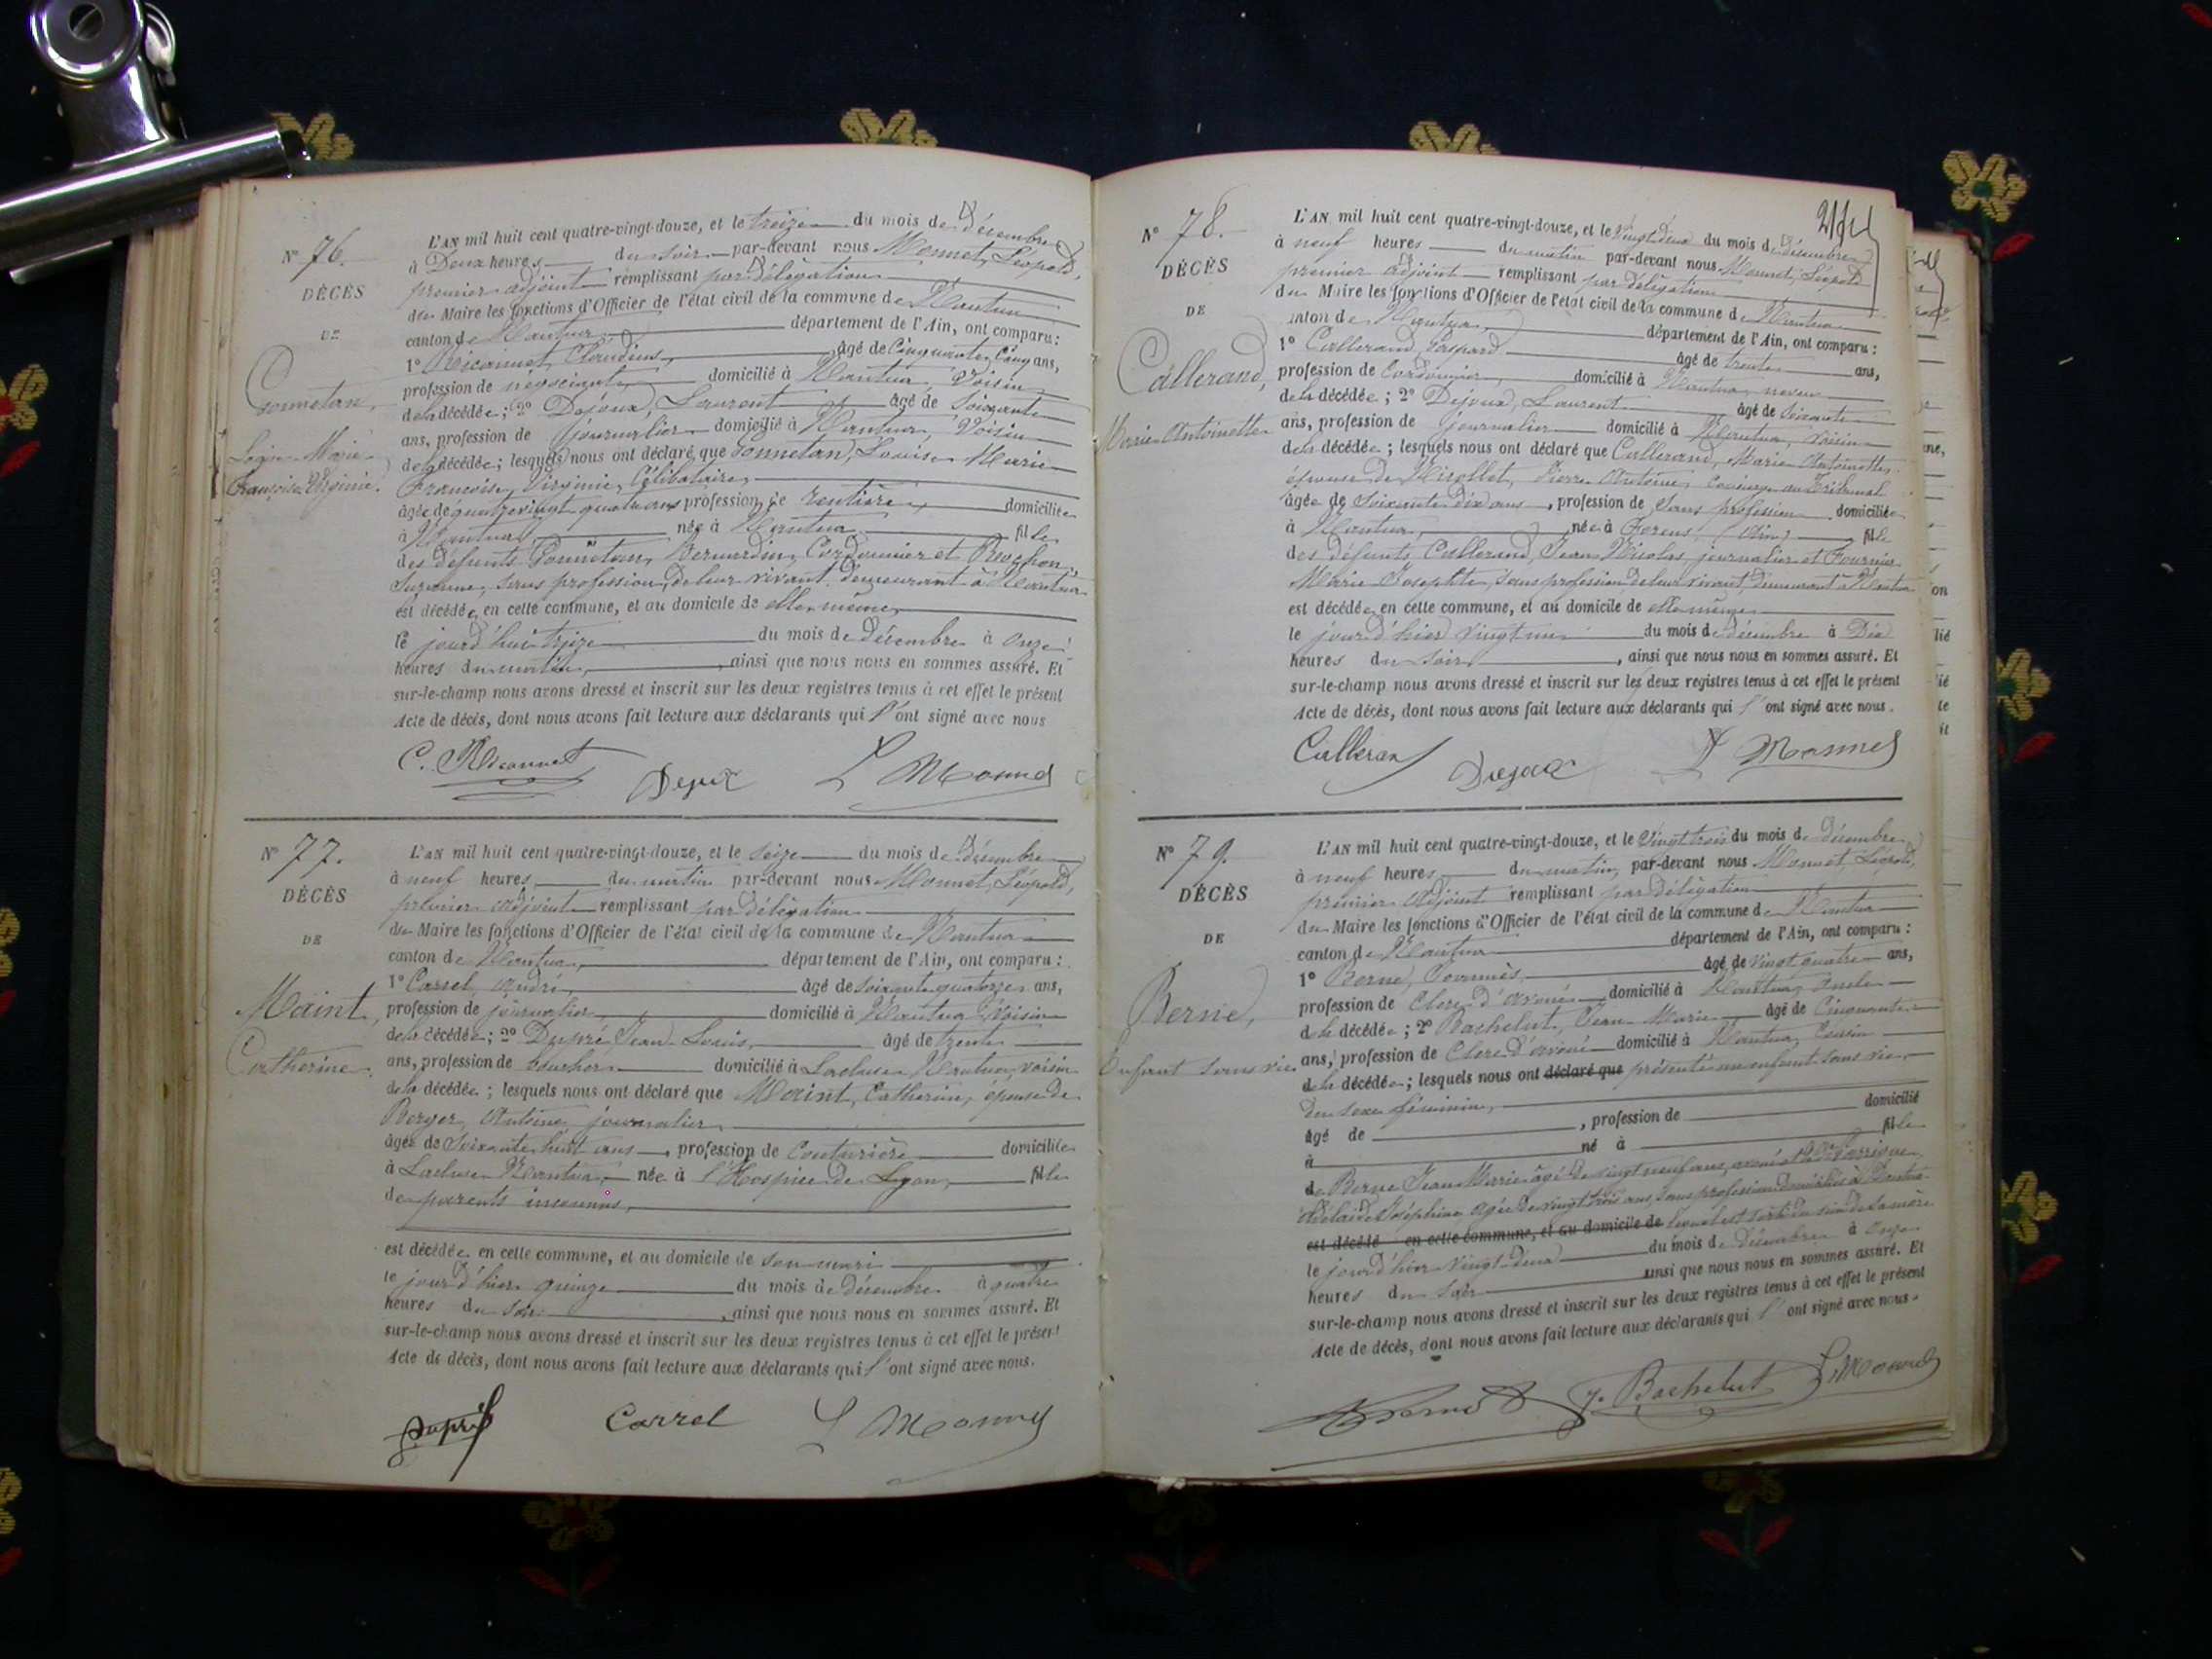 N° 76.
DÉCÈS
DE
Gonnetan,
Louise Marie
Françoise Virginie.
L'AN mil huit cent quatre-vingt-douze, et le treize du mois de décembre
à Deux heures du soir par-devant nous Monnet, Léopold,
premier adjoint remplissant par délégation
du Maire les fonctions d'Officier de l'état civil de la commune de Nantua
canton de Nantua, département de l'Ain, ont comparu :
1° Claudius, âgé de Cinquante Cinq ans,
profession de négociant, domicilié à Nantua, Voisin
de la décédée ; 2° Dejoux, Laurent âgé de Soixante
ans, profession de journalier domicilié à Nantua, Voisin
de la décédée ; lesquels nous ont déclaré que Gonnetan, Louise Marie
Françoise, Virginie, Célibataire,
âgée de quatre vingt quatre ans profession de rentière, domiciliée
à Nantua, née à Nantua fille
des défunts Gonnetan, Bernardin, Cordonnier et Rochon,
Suzanne, sans profession, de leur vivant demeurant à Nantua
est décédée en cette commune, et au domicile de elle même,
le jourd'hui treize du mois de décembre à onze
heures du matin, ainsi que nous nous en sommes assuré. Et
sur-le-champ nous avons dressé et inscrit sur les deux registres tenus à cet effet le présent
Acte de décès, dont nous avons fait lecture aux déclarants qui l'ont signé avec nous
Dejoux L Monnet
N° 77.
DÉCÈS
DE
Maint,
Catherine.
L'AN mil huit cent quatre-vingt-douze, et le seize du mois de décembre
à neuf heures du matin par-devant nous Monnet, Léopold,
premier adjoint remplissant par délégation
du Maire les fonctions d'Officier de l'état civil de la commune de Nantua
canton de Nantua, département de l'Ain, ont comparu :
1° Carrel, André, âgé de soixante quatorze ans,
profession de journalier, domicilié à Nantua Voisin
de la décédée ; 2° Dupré, Jean Louis, âgé de trente
ans, profession de boucher domicilié à Lacluse, Nantua, voisin
de la décédée ; lesquels nous ont déclaré que Maint, Catherine, épouse de
Berger, Antoine, journalier,
âgée de Soixante huit ans, profession de Couturière domiciliée
à Lacluse Nantua, née à l'Hospice de Lyon, fille
de parents inconnus,
est décédée en cette commune, et au domicile de son mari
le jour d'hier quinze du mois de décembre à quatre
heures du soir, ainsi que nous nous en sommes assuré. Et
sur-le-champ nous avons dressé et inscrit sur les deux registres tenus à cet effet le présent
Acte de décès, dont nous avons fait lecture aux déclarants qui l'ont signé avec nous.
Dupré Carrel L Monnet
N° 78.
DÉCÈS
DE
Callerand,
Marie Antoinette
L'AN mil huit cent quatre-vingt-douze, et le vingt deux du mois de décembre
à neuf heures du matin par-devant nous Monnet, Léopold
premier adjoint remplissant par délégation
du Maire les fonctions d'Officier de l'état civil de la commune de Nantua
canton de Nantua, département de l'Ain, ont comparu :
1° Callerand, Gaspard âgé de trente ans,
profession de Cordonnier, domicilié à Nantua, neveu
de la décédée ; 2° Dejoux, Laurent âgé de Soixante
ans, profession de journalier domicilié à Nantua, voisin
de la décédée ; lesquels nous ont déclaré que Callerand, Marie Antoinette
épouse de Pierre Antoine, Concierge au Tribunal
âgée de Soixante dix ans, profession de Sans profession domiciliée
à Nantua, née à (Ain) fille
des défunts Callerand, Jean Nicolas, journalier et Fournier
Marie Josephte, sans profession de leur vivant, demeurant à Nantua
est décédée en cette commune, et au domicile de elle même
le jour d'hier vingt un du mois de décembre à Dix
heures du soir, ainsi que nous nous en sommes assuré. Et
sur-le-champ nous avons dressé et inscrit sur les deux registres tenus à cet effet le présent
Acte de décès, dont nous avons fait lecture aux déclarants qui l'ont signé avec nous.
Calleran Dejoux L Monnet
N° 79.
DÉCÈS
DE
Berne,
Enfant sans vie
L'AN mil huit cent quatre-vingt-douze, et le Vingt trois du mois de décembre
à neuf heures du matin, par-devant nous Monnet, Léopold,
premier adjoint remplissant par délégation
du Maire les fonctions d'Officier de l'état civil de la commune de Nantua
canton de Nantua département de l'Ain, ont comparu :
1° Berne, Joannès, âgé de vingt quatre ans,
profession de Clerc d'avoué domicilié à Nantua, oncle
de la décédée ; 2° Bachelut, Jean Marie âgé de Cinquante
ans, profession de Clerc d'avoué domicilié à Nantua, Cousin
de la décédée ; lesquels nous ont déclaré que présenté un enfant sans vie,
du sexe féminin,
âgé de , profession de domicilié
à né à fille
de Berne Jean Marie âgé de vingt neuf ans, avoué et de
Adélaïde Joséphine âgée de vingt trois ans, sans profession domiciliés à Nantua
est décédé en cette commune, et au domicile de lequel est sorti du sein de sa mère
le jour d'hier vingt deux du mois de décembre à onze
heures du soir ainsi que nous nous en sommes assuré. Et
sur-le-champ nous avons dressé et inscrit sur les deux registres tenus à cet effet le présent
Acte de décès, dont nous avons fait lecture aux déclarants qui l'ont signé avec nous.
J. Bachelut L Monnet